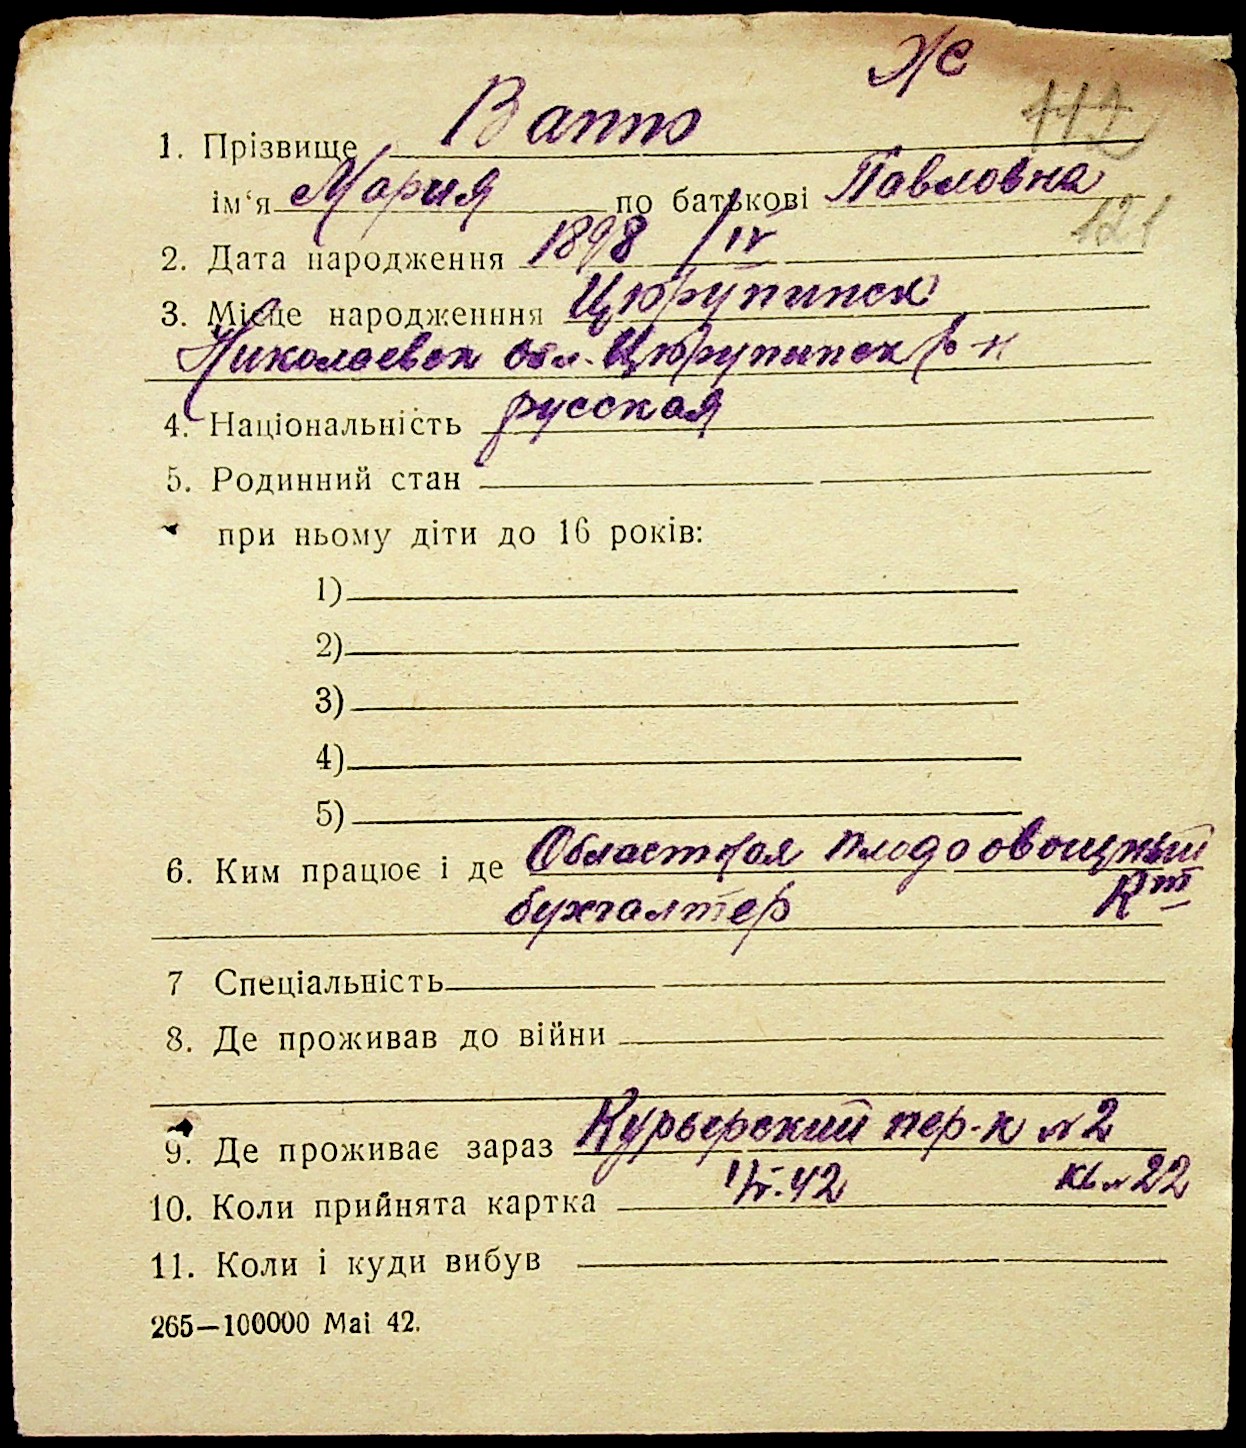 Ж
112
1. Прізвище Ватто
ім‘я Мария по батькові Павловна
121
2. Дата народження 1898 /IV
3. Місце народженння Цюрупинск
Николаевск обл. Цюрупинск р-н
4. Національність русская
5. Родинний стан
при ньому діти до 16 років:
1)
2)
3)
4)
5)
6. Ким працює і де Областная плодоовощный
бухгалтер к-т
7 Спеціальність
8. Де проживав до війни
9. Де проживає зараз Курьерский пер-к № 2
кв № 22
10. Коли прийнята картка
11. Коли і куди вибув
265—100000 Маі 42.